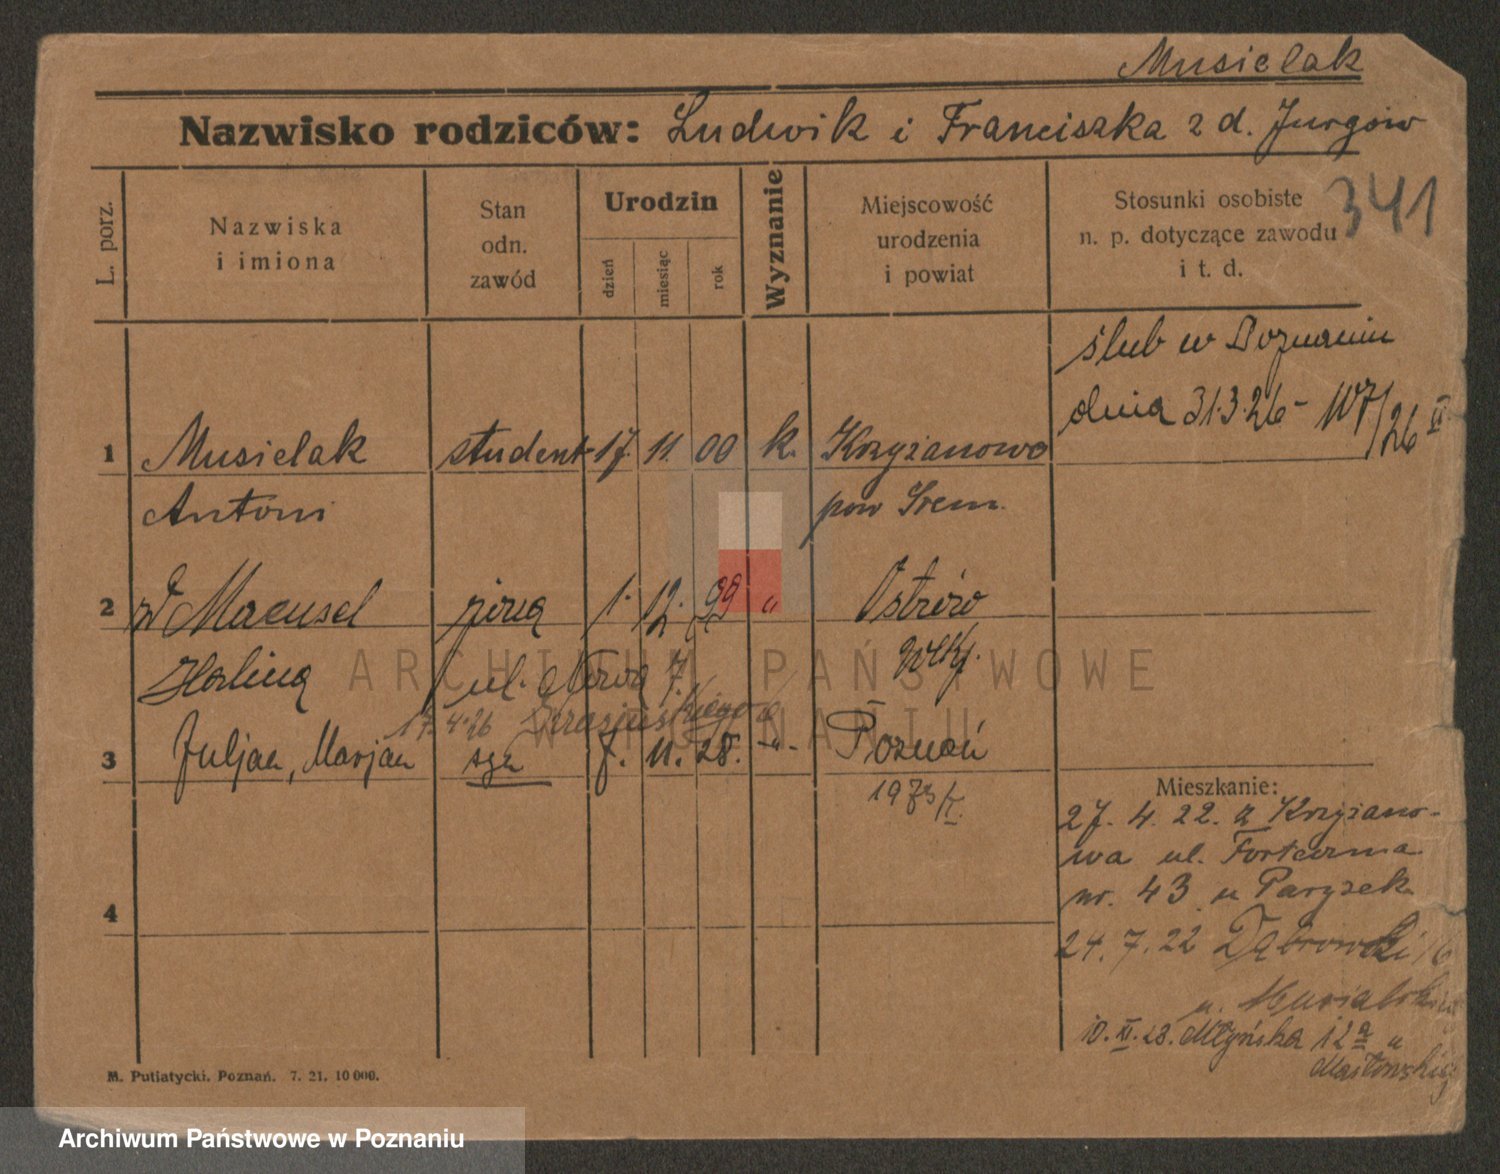 Musielak
Nazwisko rodziców: Ludwik i Franciszka z d. Jurgów
L. porz.
Nazwiska
i imiona
Stan
odn.
zawód
Urodzin
dzień
miesiąc
rok
Wyznanie
Miejscowość
urodzenia
i powiat
Stosunki osobiste
n. p. dotyczące zawodu
i t. d.
341
ślub w Poznaniu
dnia 31.3.26 - 107/26 II
1 Musielak student 17. 11. 00 k. Krzyżanowo
Antoni pow Śrem.
2 żona 1. 12. 99 " Ostrów
Halina ul. Nowa 7. Wlkp.
17.4.26 Krasińskiego
3 Juljan, Marjan syn 7. 11. 28. -"- Poznań
Mieszkanie:
27. 4. 22. z Krzyżano-
wa ul. Forteczna
nr. 43 u Paryzek
4
24. 7. 22 Dąbrowski
u.
10. XI. 23. Młyńska 12a u
M. Putiatycki. Poznań. 7. 21. 10 000.
ARCHIWUM PAŃSTWOWE
W POZNANIU
Archiwum Państwowe w Poznaniu